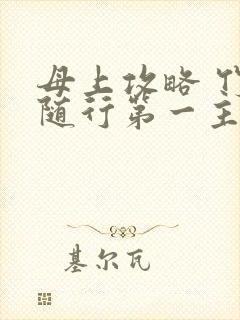 母上攻略
随行第一主
基尔瓦